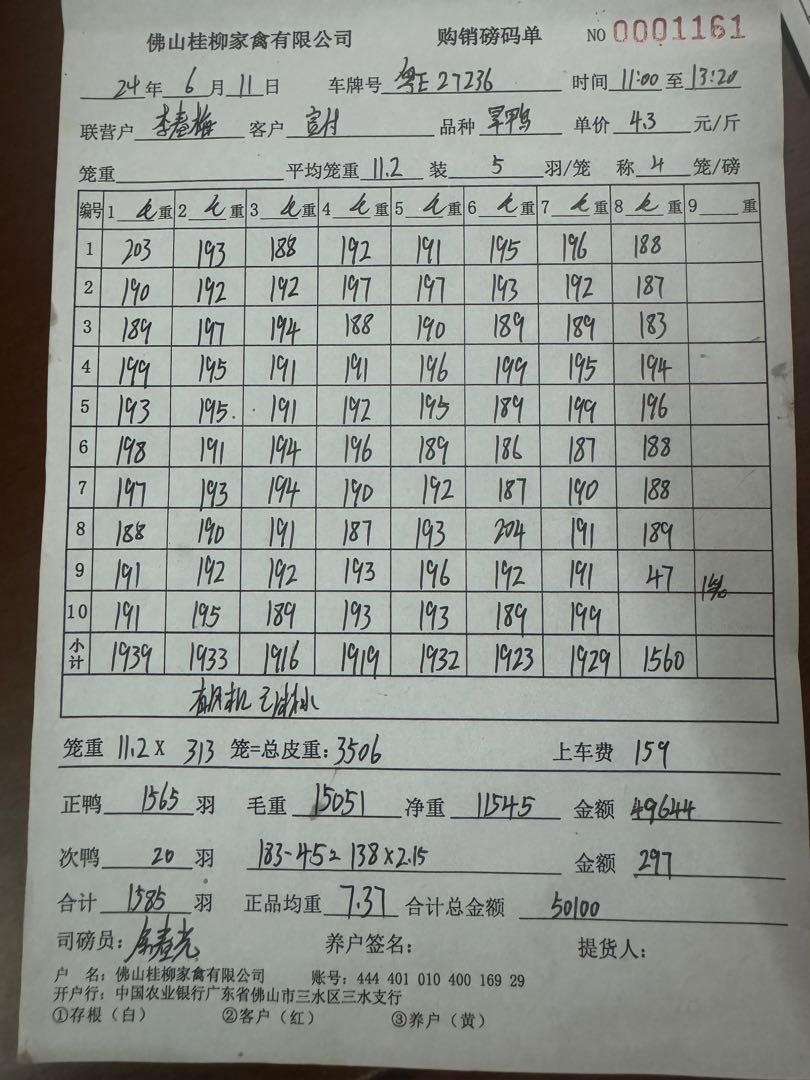 佛山桂柳家禽有限公司 购销磅码单 NO 0001161
24年6月11日 车牌号 粤E 27236 时间 11:00至13:20
联营户 李春梅 客户 宣付 品种 旱鸭 单价 4.3 元/斤
笼重 平均笼重 11.2 装 5 羽/笼 称 4 笼/磅
编号 1 毛重 2 毛重 3 毛重 4 毛重 5 毛重 6 毛重 7 毛重 8 毛重 9 重
1 203 193 188 192 191 195 196 188
2 190 192 192 197 197 193 192 187
3 189 197 194 188 190 189 189 183
4 199 195 191 191 196 199 195 194
5 193 195 191 192 195 189 199 196
6 198 191 194 196 189 186 187 188
7 197 193 194 190 192 187 190 188
8 188 190 191 187 193 204 191 189
9 191 192 192 193 196 192 191 47
10 191 195 189 193 193 189 199
小计 1939 1933 1916 1919 1932 1923 1929 1560
笼重 11.2 X 313 笼=总皮重: 3506 上车费 159
正鸭 1565 羽 毛重 15051 净重 11545 金额 49644
次鸭 20 羽 183-45=138×2.15 金额 297
合计 1585 羽 正品均重 7.37 合计总金额 50100
司磅员: 养户签名: 提货人:
户 名: 佛山桂柳家禽有限公司 账号: 444 401 010 400 169 29
开户行: 中国农业银行广东省佛山市三水区三水支行
①存根（白） ②客户（红） ③养户（黄）